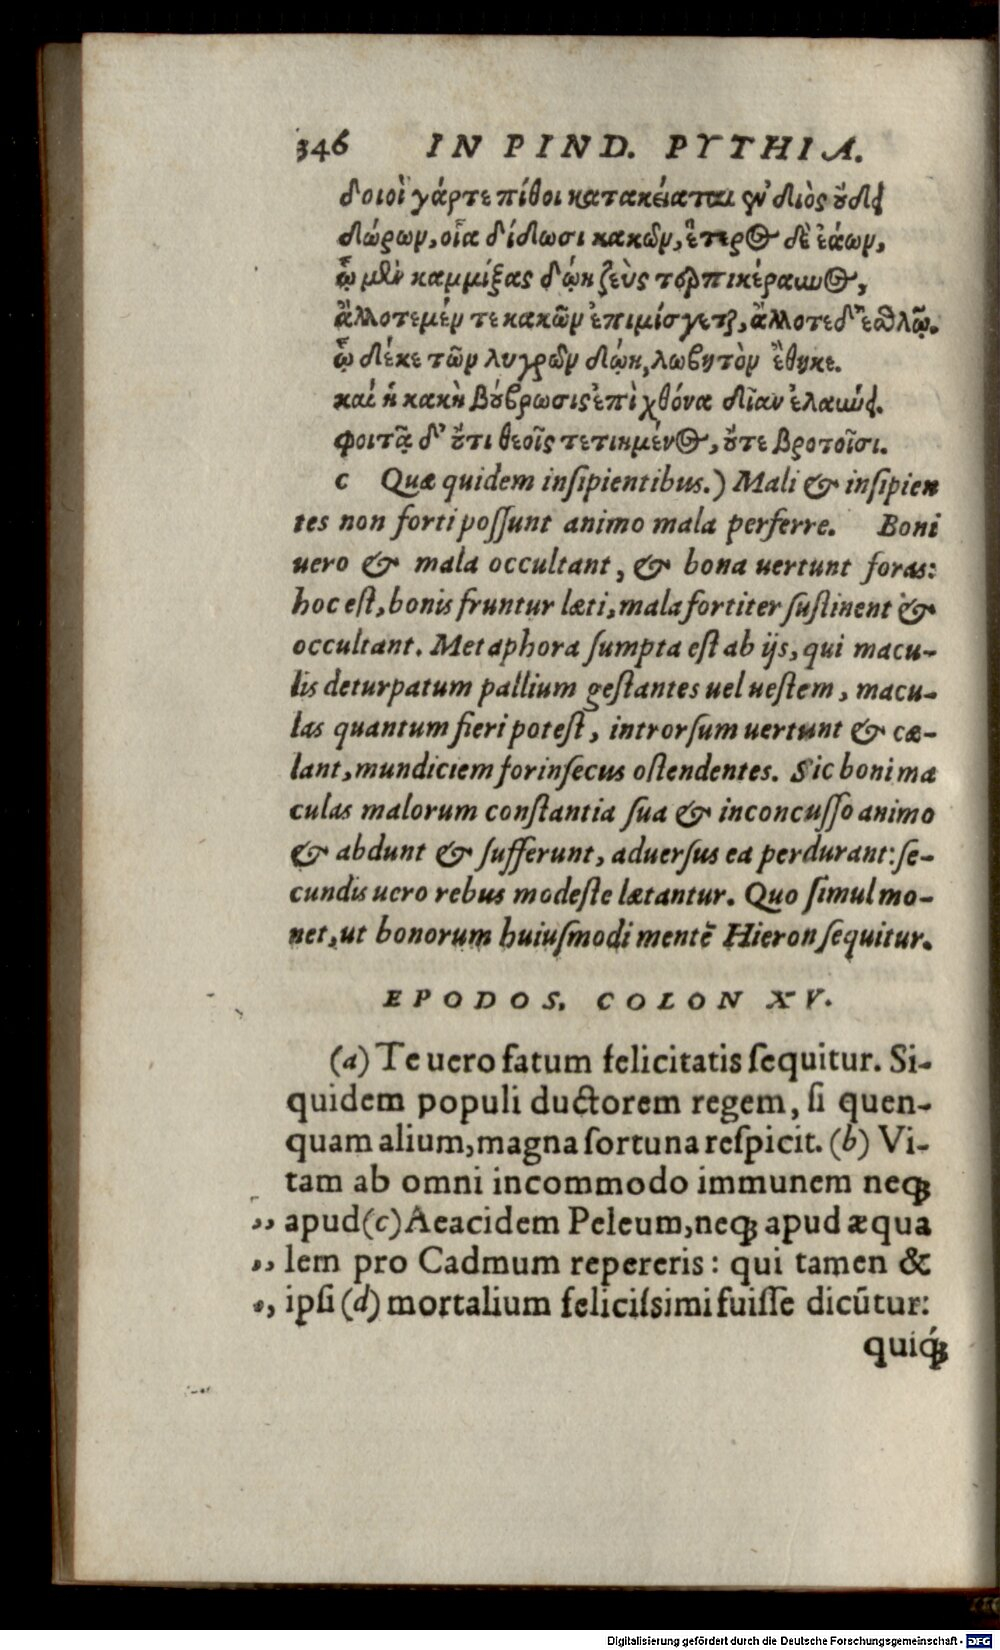 346 IN PIND. PYTHIA.
δοιοὶ γάρτε πίθοι κατακείαται ἐν διὸς οὔδει
δώρων, οἷα δίδωσι κακῶν, ἕτερος δὲ ἐάων,
ᾧ μὲν καμμίξας δώῃ ζεὺς τερπικέραυνος,
ἄλλοτε μέν τε κακῶν ἐπιμίσγεται, ἄλλοτε δ᾽ ἐσθλῷ.
ᾧ δέ κε τῶν λυγρῶν δώῃ, λωβητὸν ἔθηκε.
καί ἡ κακὴ βούβρωσις ἐπὶ χθόνα δῖαν ἐλαύνει.
φοιτᾷ δ᾽ οὔτι θεοῖς τετιημένος, οὔτε βροτοῖσι.
c Quæ quidem insipientibus.) Mali & insipien
tes non forti possunt animo mala perferre. Boni
uero & mala occultant, & bona uertunt foras:
hoc est, bonis fruntur læti, mala fortiter sustinent &
occultant. Metaphora sumpta est ab ijs, qui macu-
lis deturpatum pallium gestantes uel uestem, macu-
las quantum fieri potest, introrsum uertunt & cæ-
lant, mundiciem forinsecus ostendentes. Sic boni ma
culas malorum constantia sua & inconcusso animo
& abdunt & sufferunt, aduersus ea perdurant: se-
cundis uero rebus modeste lætantur. Quo simul mo-
net, ut bonorum huiusmodi mentē Hieron sequitur.
EPODOS. COLON XV.
(a) Te uero fatum felicitatis sequitur. Si-
quidem populi ductorem regem, si quen-
quam alium, magna fortuna respicit. (b) Vi-
tam ab omni incommodo immunem neqꝫ
,, apud (c) Aeacidem Peleum, neqꝫ apud æqua
,, lem pro Cadmum repereris: qui tamen &
,, ipsi (d) mortalium felicissimi fuisse dicūtur:
quiq́ꝫ
Digitalisierung gefördert durch die Deutsche Forschungsgemeinschaft - DFG